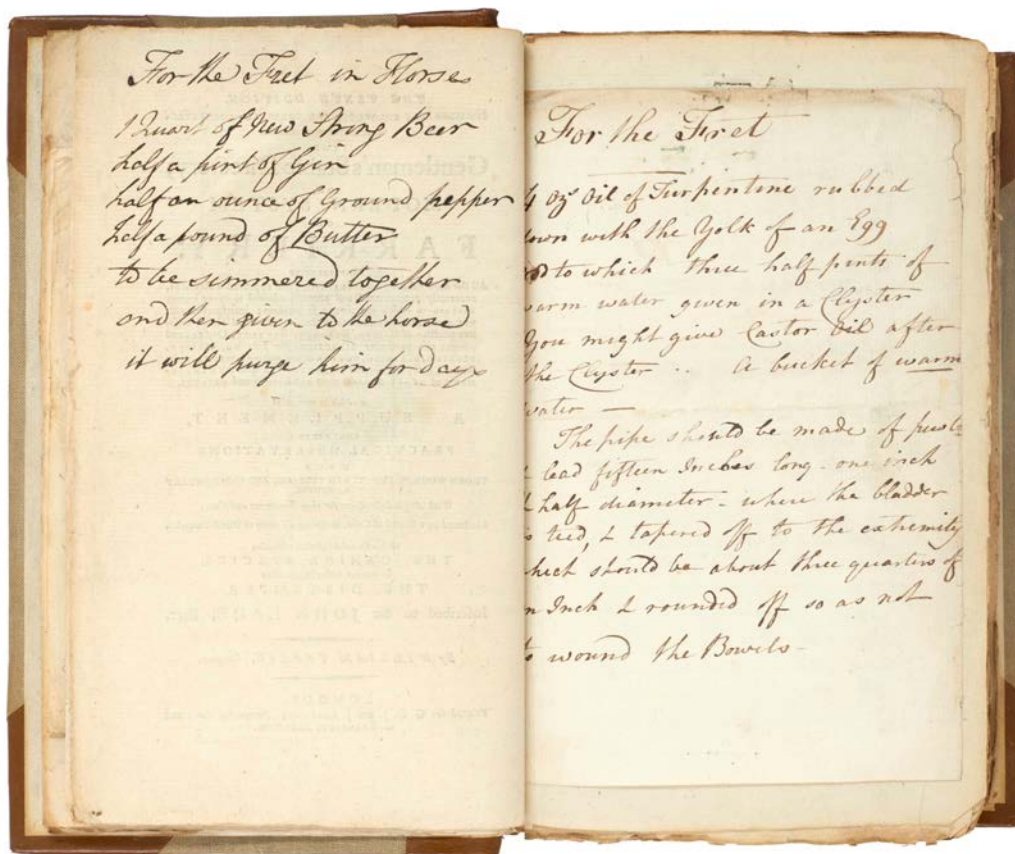 For the Fret in Horses
1 Quart of new Strong Beer
half a pint of Gin
half an ounce of Ground pepper
half a pound of Butter
to be simmered together
and then given to the horse
it will purge him for days
For the Fret
4 Oz Oil of Turpentine rubbed
down with the Yolk of an Egg
to which three half pints of
warm water given in a Clyster
You might give Castor Oil after
the Clyster .. A bucket of warm
water —
The pipe should be made of
lead fifteen Inches long - one inch
& half diameter - where the bladder
is tied, & tapered off to the extremity
which should be about three quarters of
an Inch & rounded off so as not
to wound the Bowels -